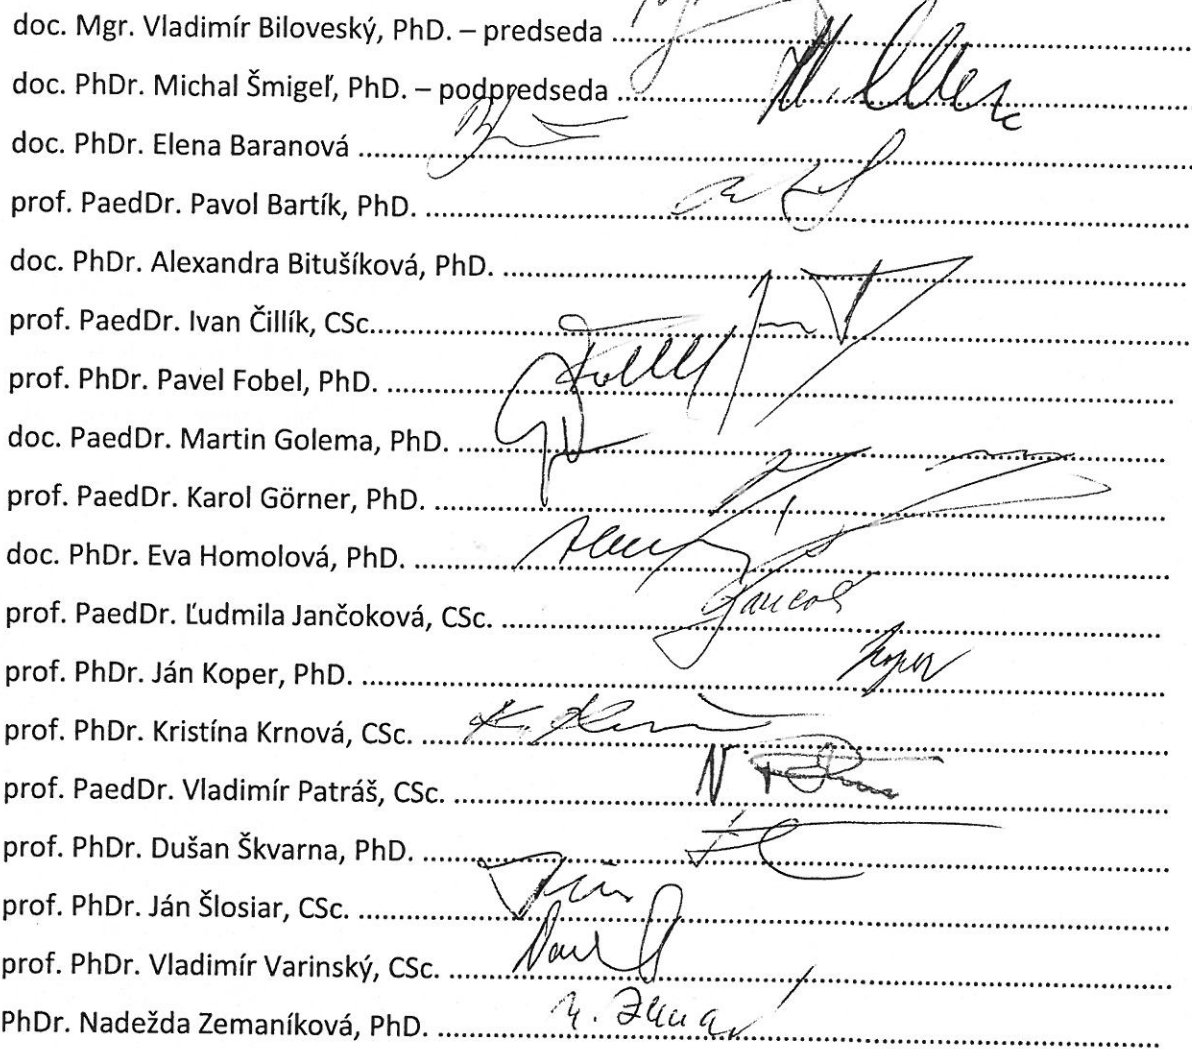 doc. Mgr. Vladimír Biloveský, PhD. – predseda ........................................
doc. PhDr. Michal Šmigeľ, PhD. – podpredseda ........................................
doc. PhDr. Elena Baranová ........................................
prof. PaedDr. Pavol Bartík, PhD. ........................................
doc. PhDr. Alexandra Bitušíková, PhD. ........................................
prof. PaedDr. Ivan Čillík, CSc........................................
prof. PhDr. Pavel Fobel, PhD. ........................................
doc. PaedDr. Martin Golema, PhD. ........................................
prof. PaedDr. Karol Görner, PhD. ........................................
doc. PhDr. Eva Homolová, PhD. ........................................
prof. PaedDr. Ľudmila Jančoková, CSc. ........................................
prof. PhDr. Ján Koper, PhD. ........................................
prof. PhDr. Kristína Krnová, CSc. ........................................
prof. PaedDr. Vladimír Patráš, CSc. ........................................
prof. PhDr. Dušan Škvarna, PhD. ........................................
prof. PhDr. Ján Šlosiar, CSc. ........................................
prof. PhDr. Vladimír Varinský, CSc. ........................................
PhDr. Nadežda Zemaníková, PhD. ........................................